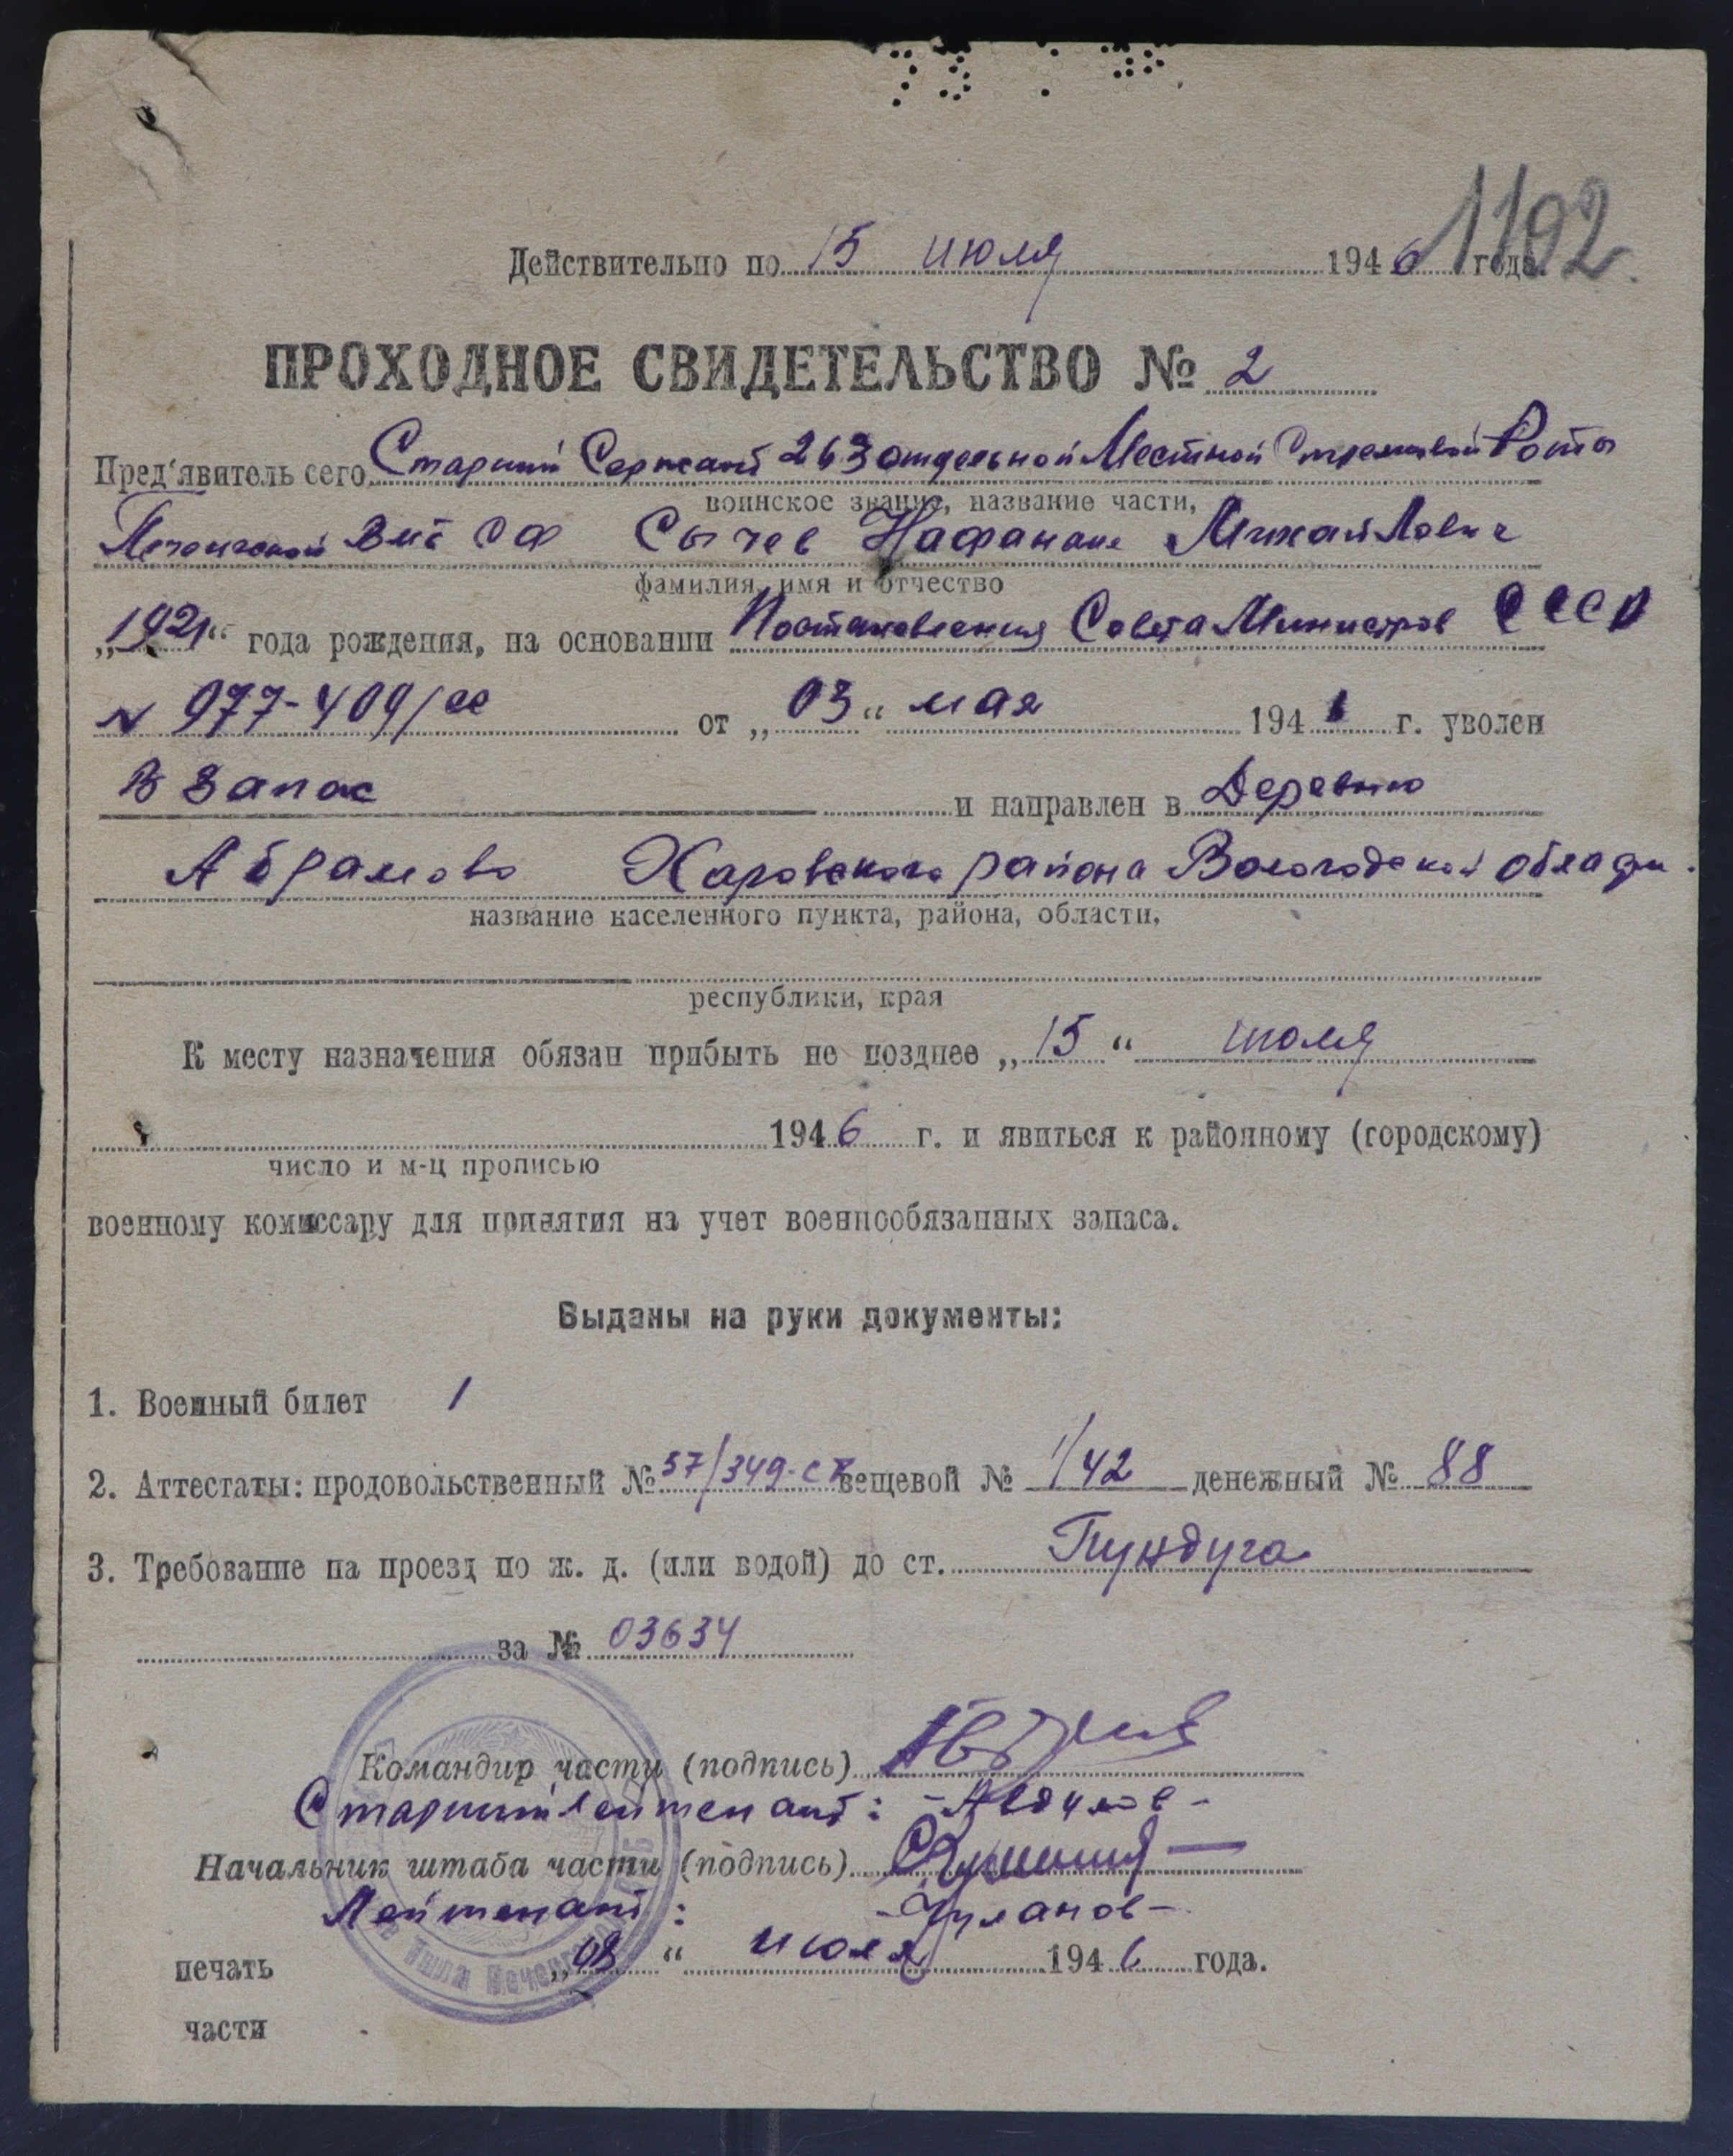 1192
Действительно по 15 июля 1946 года.
ПРОХОДНОЕ СВИДЕТЕЛЬСТВО № 2
Пред'явитель сего Старший Сержант 263 отдельной Местной Стрелковой Роты
воинское звание, название части,
Печенгской ВМБ СФ Сычев Нафанаил Михайлович
фамилия, имя и отчество
„1921“ года рождения, на основании Постановления Совета Министров СССР
N 977-409/сс от „03“ мая 194 г. уволен
В запас и направлен в Деревню
Абрамово Харовского района Вологодской области.
название населенного пункта, района, области,
республики, края
К месту назначения обязан прибыть не позднее „15“ июля
1946 г. и явиться к районному (городскому)
число и м-ц прописью
военному комиссару для принятия на учет военнообязанных запаса.
Выданы на руки документы:
1. Военный билет 1
2. Аттестаты: продовольственный № 57/349-с вещевой № 1/42 денежный № 88
3. Требование на проезд по ж. д. (или водой) до ст. Пундуга
за № 03634
Командир части (подпись)
Старший лейтенант: -Авдуков-
Начальник штаба части (подпись)
Лейтенант: -Чуланов-
печать „08“ июля 1946 года.
части
Тыла Печенгской